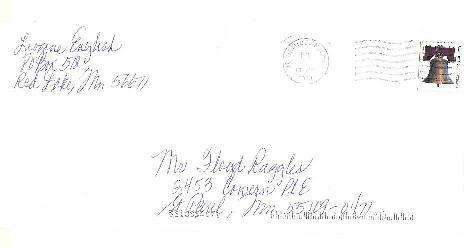 Luonne English
PO Box 518
Red Lake, Mn 56671
Mr Floyd Raggles
3453 Cowern Pl E
St. Paul, Mn 55109-0171